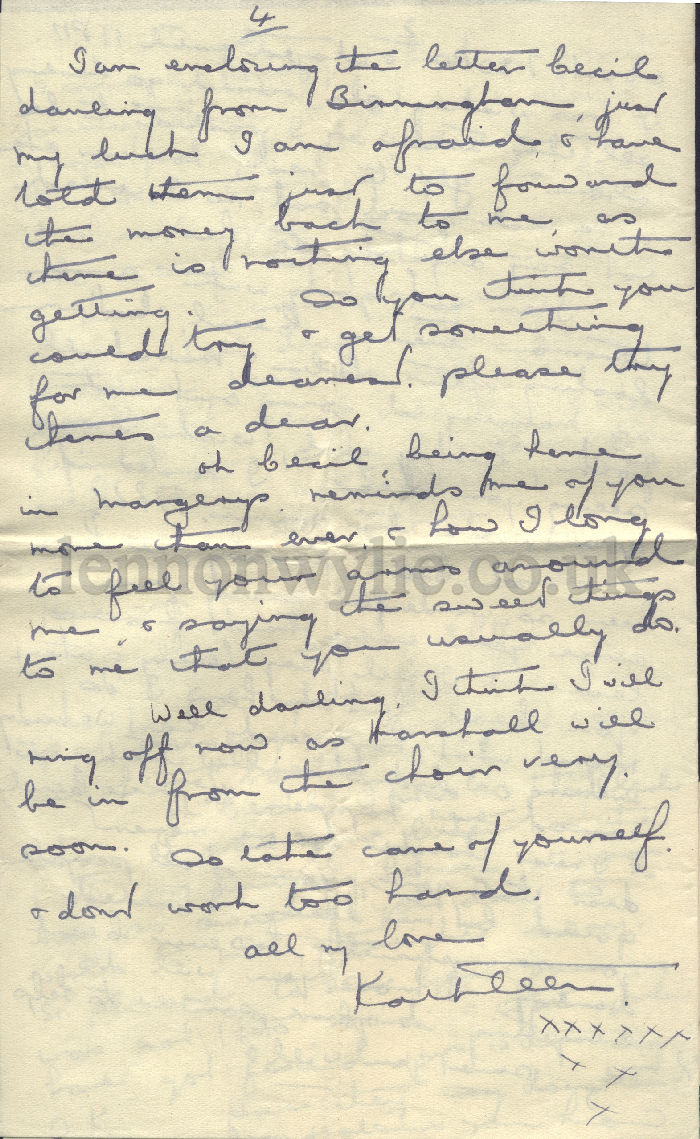 4
I am enclosing the letter Cecil
darling from Birmingham, just
my luck I am afraid, & have
told them just to forward
the money back to me, as
there is nothing else worth
getting. Do you think you
could try & get something
for me dearest. please try
theres a dear.
oh Cecil, being here
in Margerys reminds me of you
more than ever, & how I long
to feel your arms around
me, & saying the sweet things
to me that you usually do.
Well darling, I think I will
ring off now as Marshall will
be in from the choir very.
soon. Do take care of yourself.
& dont work too hard.
all my love
Kathleen.
xxxxxx
x x
x
lennonwylie.co.uk